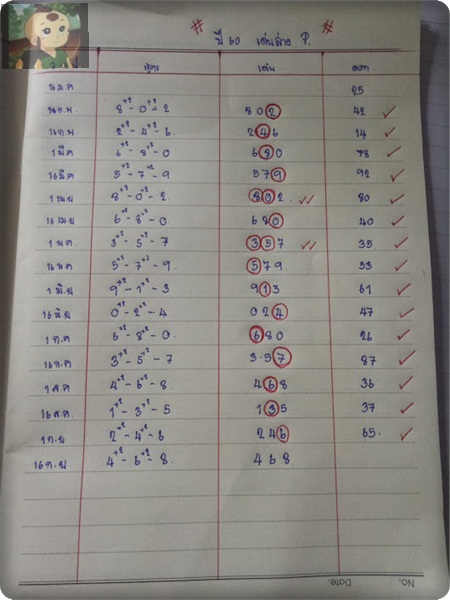 ปี 60 เด่นล่าง P.
สูตร เด่น ออก
25
8⁺²-0⁺²-2 802 42
16 ก.พ 2⁺²-4⁺²-6 246 14
1 มี.ค 6⁺²-8⁺²-0 680 78
16 มี.ค 5⁺²-7⁺²-9 579 92
1 เม.ย 8⁺²-0⁺²-2. 802. 80
16 เม.ย 6⁺²-8⁺²-0. 680 40
1 พ.ค 3⁺²-5⁺²-7 357 35
16 พ.ค 5⁺²-7⁺²-9. 579. 53
1 มิ.ย 9⁺²-1⁺²-3 913 61
16 มิ.ย 0⁺²-2⁺²-4 024 47
1 ก.ค 6⁺²-8⁺²-0. 680 26
16 ก.ค 3⁺²-5⁺²-7 3.57 87
1 ส.ค 4⁺²-6⁺²-8 468 36
16 ส.ค 1⁺²-3⁺²-5 135 37
1 ก.ย 2⁺²-4⁺²-6 246 65.
16 ก.ย 4⁺²-6⁺²-8. 468.
No. Date.